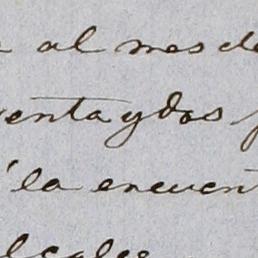 al mes de
enta y dos
la encuent